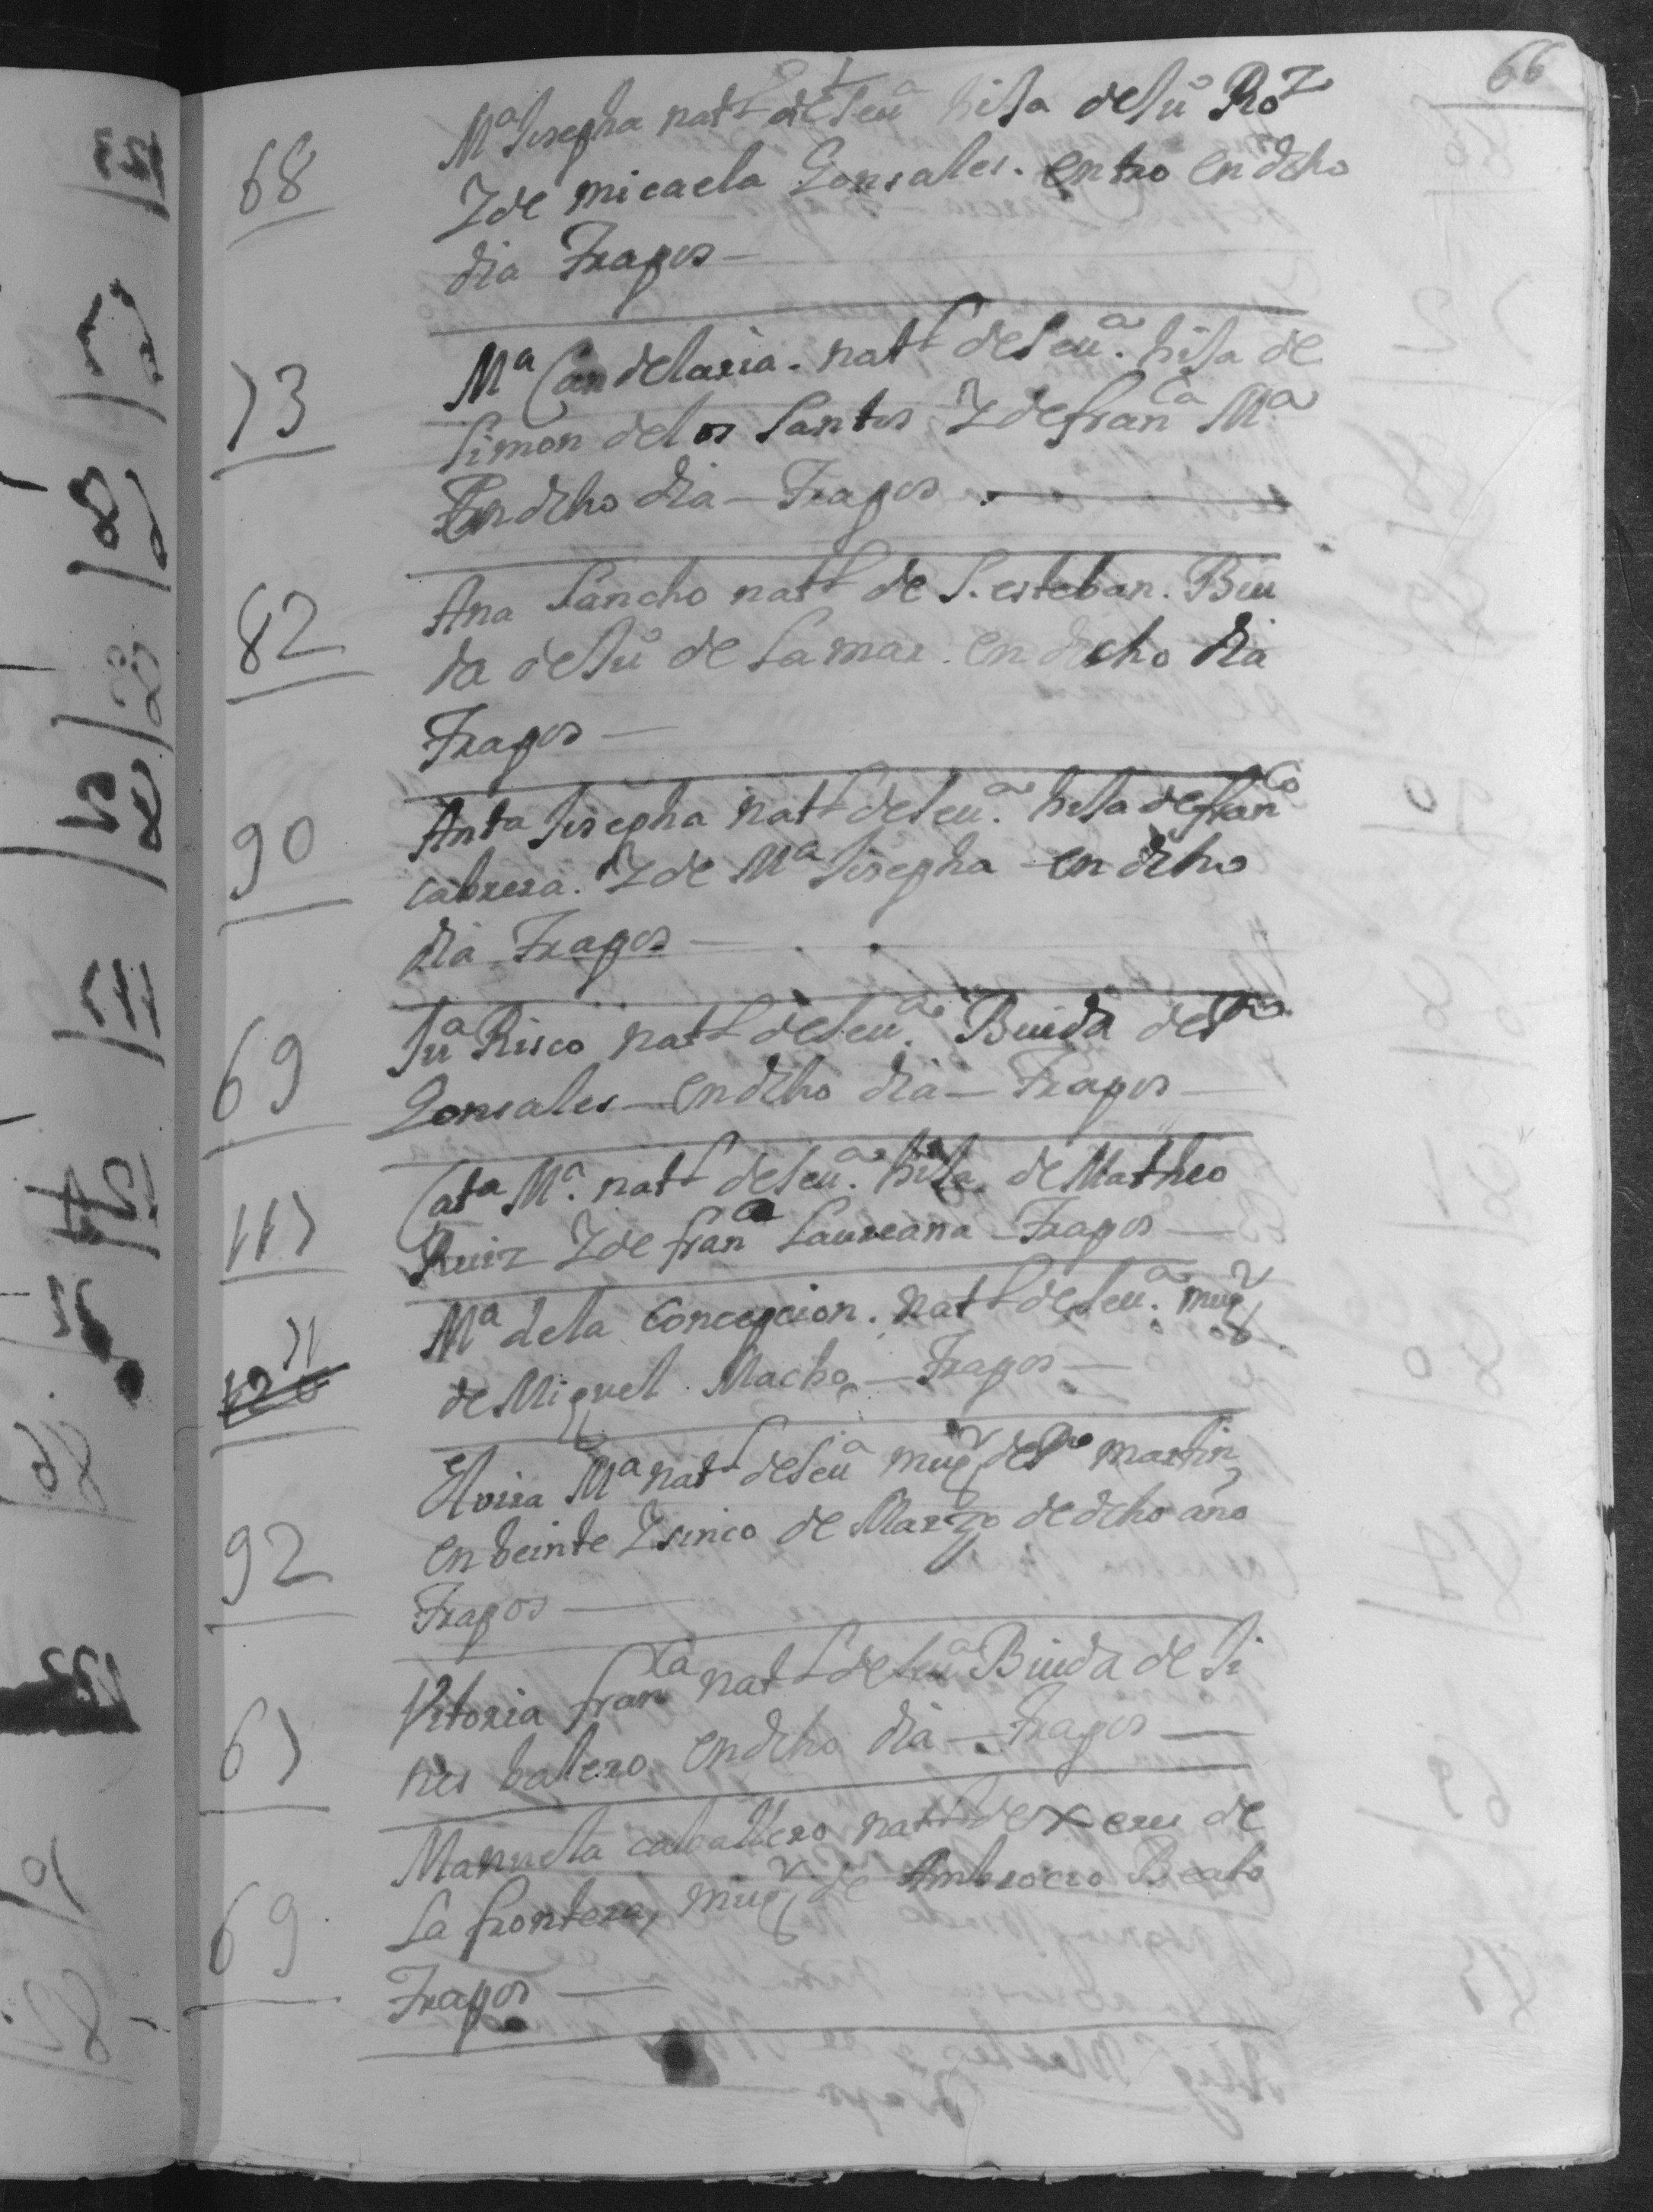 66
68
Mª Josepha natˡ de Seuª hisa de Juº Roz
Y de micaela Gonsales. entro en dcho
dia Trapos—
73
Mª Candelaria. natˡ de Seuª. hisa de
Simon de los Santos Y de franᶜᵃ Mª
En dcho dia — Trapos
82
Ana Sancho natˡ de S. esteban. Biu
da de Juº de Lamar. en dicho dia
Trapos —
90
Antª Josepha natˡ de Seuª. hisa de franᶜᵒ
cabrera. Y de Mª Josepha en dcho
dia Trapos —
69
Juª Risco natˡ de Seuª. Biuda de Pº
Gonsales — en dcho dia — Trapos —
117
Catª Mª. natˡ de Seuª. hisa de Matheo
Ruiz Y de franᶜᵃ Laureana — Trapos —
71
Mª de la Concepcion. natˡ de Seuª. mugʳ
de Miguel Macho — Trapos —
92
Elvira Mª natˡ de Seuª mugʳ de Pº martin
en beinte Y sinco de Marzo de dcho año
Trapos —
67
Vitoria franᶜᵃ natˡ de Seuª Biuda de Ji
nes balero en dcho dia — Trapos —
69
Manuela caballero natˡ de Xeres de
La frontera, mugʳ de Ambrocio Beato
Trapos —